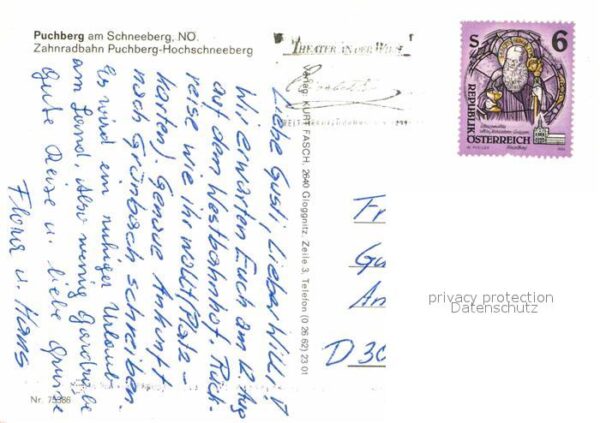 Puchberg am Schneeberg, NÖ.
Zahnradbahn Puchberg-Hochschneeberg
THEATER IN DER WIEN
Elisabeth
Liebe Gusti, Lieber Willi!
Wir erwarten Euch am 12. Aug
auf dem Westbahnhof. Rück-
reise wie ihr wollt (Platz-
karten). Genaue Ankunft
nach Grünbach schreiben.
Es wird ein ruhiger Urlaub
am Land, Also wenig Garderobe
Gute Reise u. liebe Grüsse
Flora u. Hans
Nr. 75386
Verlag: KURT FASCH, 2640 Gloggnitz, Zeile 3, Telefon (0 26 62) 23 01
S 6
REPUBLIK
ÖSTERREICH
Fr
Gu
An
D 30
privacy protection
Datenschutz